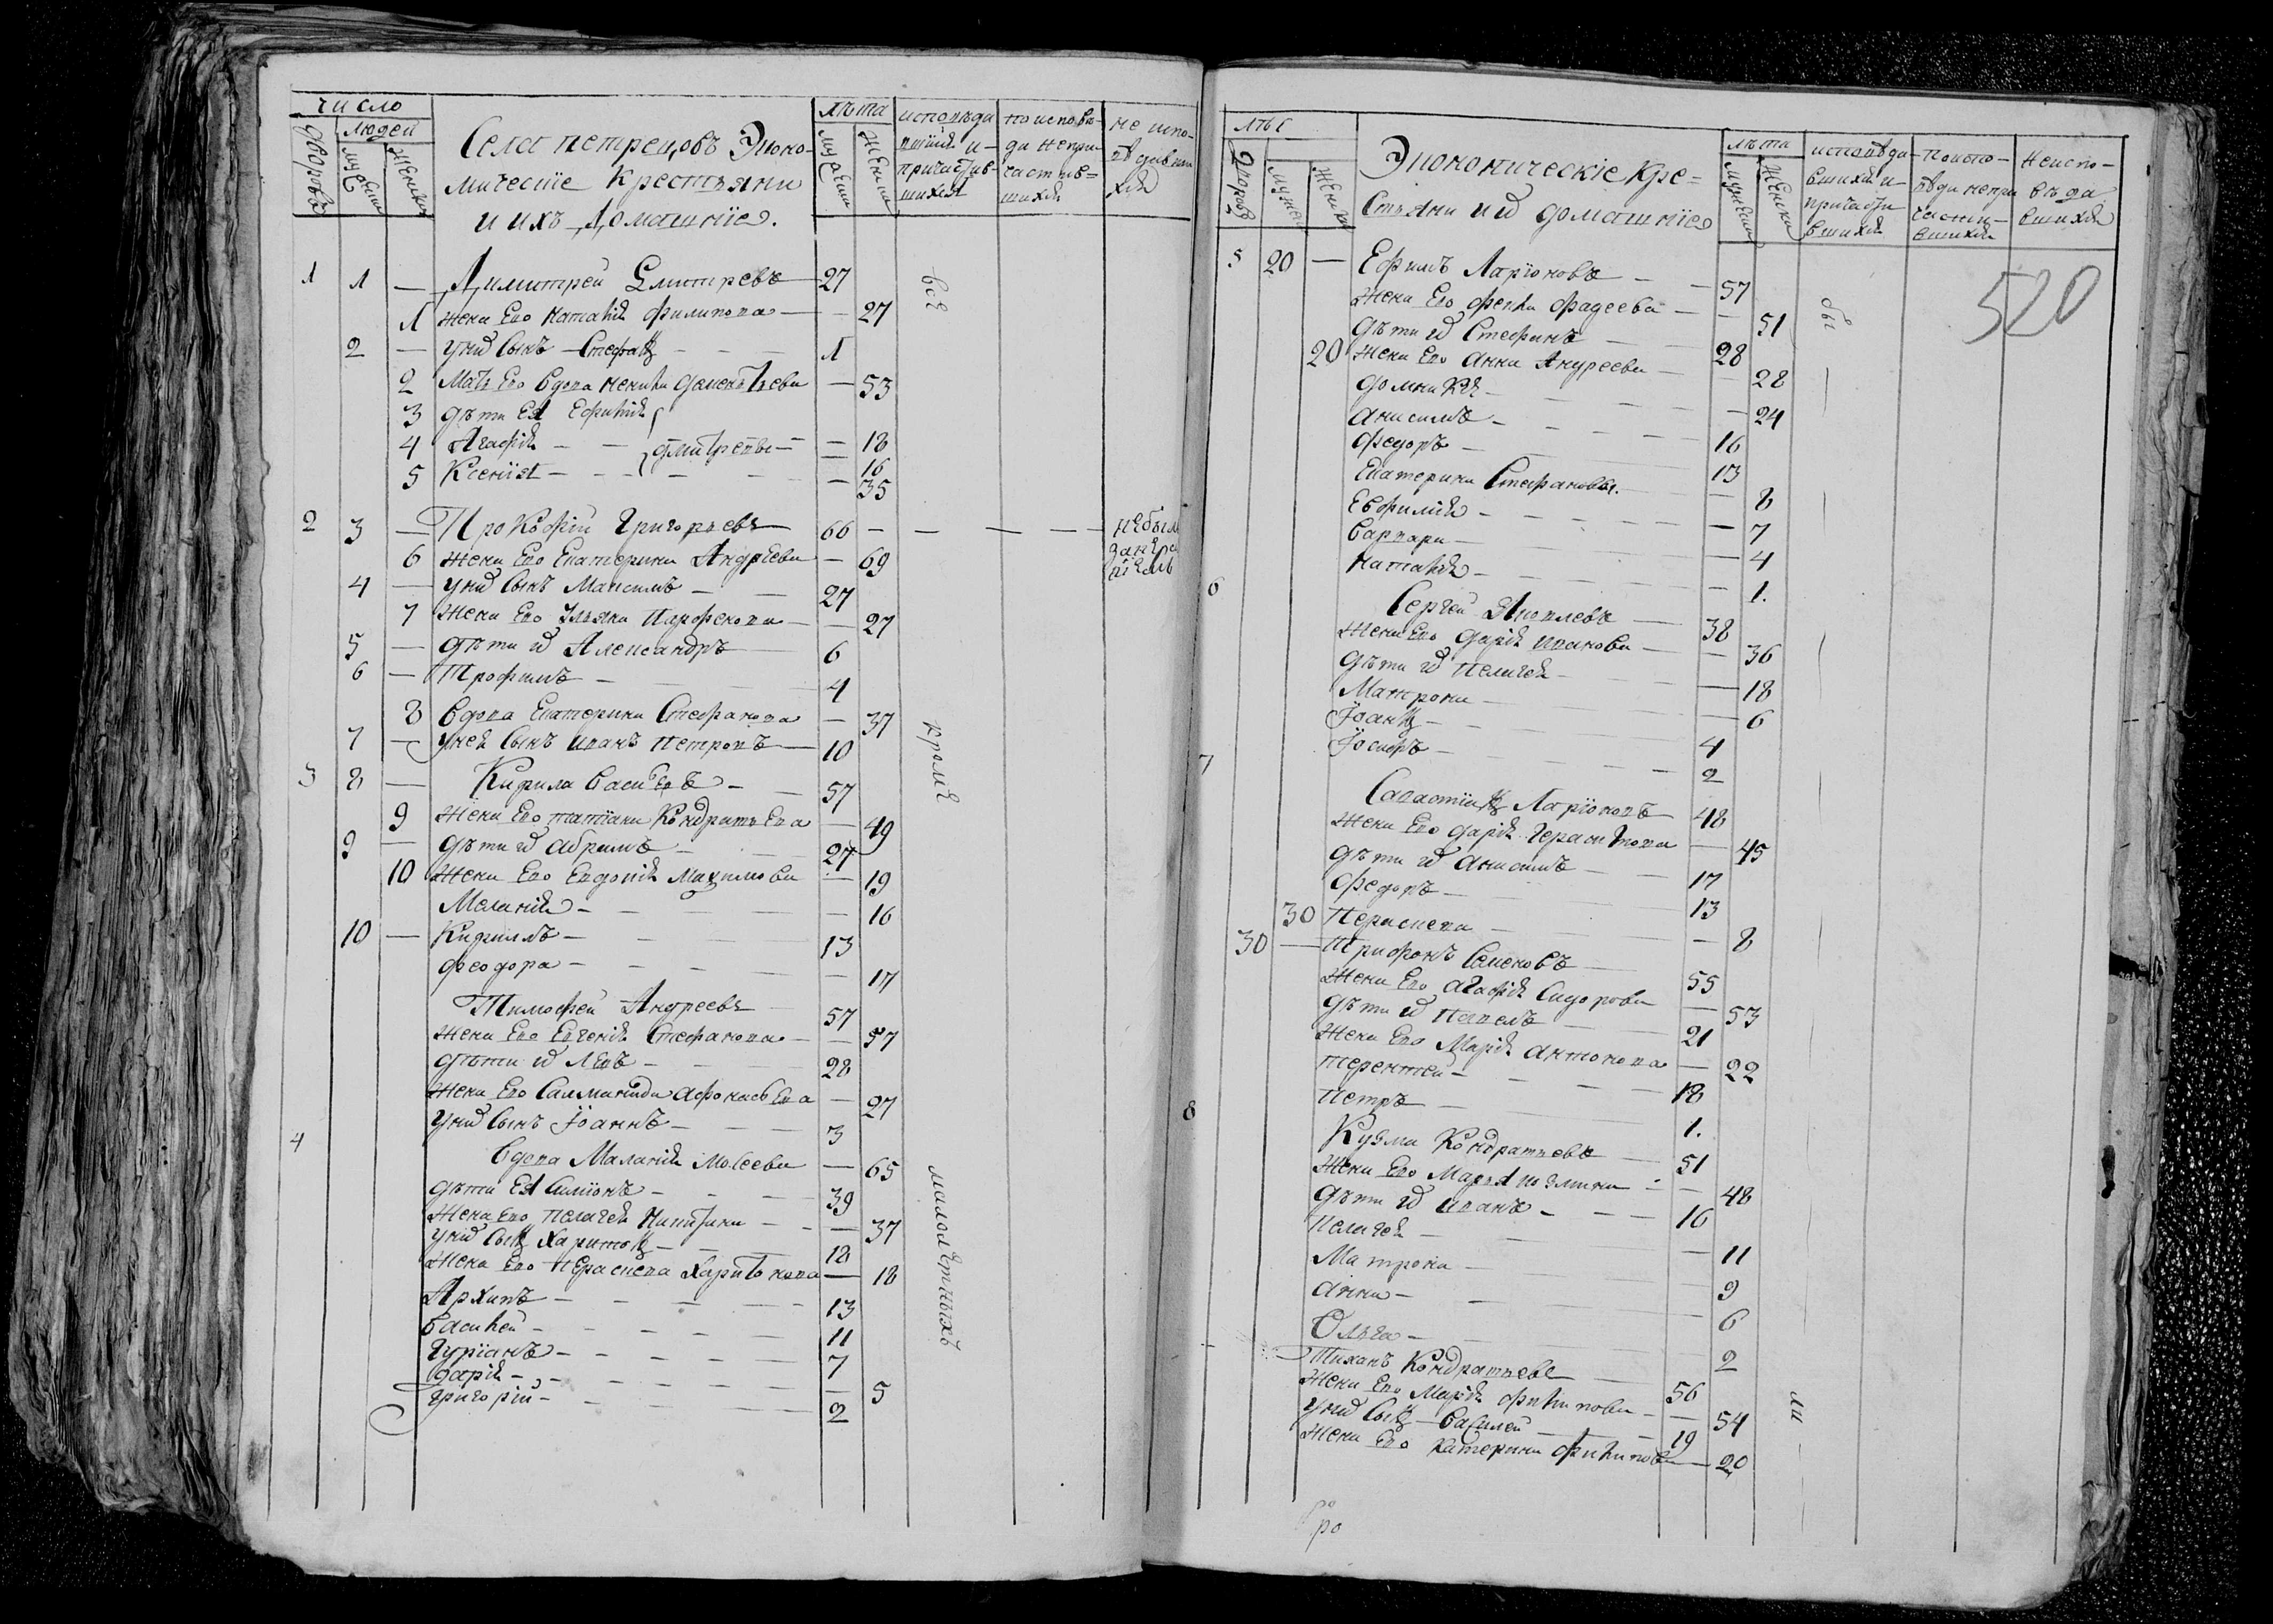 число
людей
дворовъ
мужеска
женска
Села петрецовъ Эконо-
мическïе крестьяни
и ихъ Домашнïе.
лѣта
мужеска
женска
исповѣда
вшихся и
причастив-
шихся
по исповѣ-
ди непри
частив=
шихся
не испо-
вѣдавши
хся
1 1 — Димитрей Дмитревъ 27
1 жена Его Наталïя филипова — — 27
2 — у них Сынъ Стефанъ 1
2 Мать Его вдова Дементьева — 53
3 дѣти Ея
4 Агафïя — — дмитревы — — 18
5 Ксенïя — — — 16
35
2 3 — Прокофïй Григорьевъ 66 — — —
6 жена Его Екатерина Андрѣева — 69
4 — у них Сынъ Максимъ — — 27
7 жена Его Ульяна Парфенова — — 27
5 — дѣти их Александръ 6
6 — Трофимъ — 4
8 вдова Екатерина Стефанова — 37
7 — у ней Сынъ иванъ петровъ — 10
3 8 — Кирила васильевъ — — 57
9 жена Его татïана Кондратьева — 49
9 — дѣти их абрамъ — 27
10 жена Его Евдокïя Маѯимова — 19
Меланïя — — 16
10 — Кирилъ — 13
феодора — — 17
Тимофей Андреевъ 57
жена Его Евгенïя Стефанова — — 57
дѣти их Левъ — 28
жена Его афонасьева — 27
у них Сынъ Ïоаннъ — 3
4
вдова Маланïя Мосеева — 65
дѣти Ея Симïонъ — 39
жена Его пелагея Никитина — — 37
у них Сынъ Харитонъ — 18
жена Его пераскева Харитонова — 18
Архипъ — 13
васïлей — 11
Гурïанъ — 7
дарïя — — 5
Григорïй — 2
всѣ
кромѣ
малолѣтныхъ
дворовъ
мужеска
женска
Экономическïе Кре=
стьяни и их домашнïе
лѣта
мужеска
женска
исповѣда-
вшихся и
причасти
вшихся
по испо-
вѣди непри
части-
вшихся
Неиспо-
вѣда
вшихся
520
5 20 — Ефимъ Ларïоновъ — 57
жена Его фекла фадеева — — 51
дѣти их Стефанъ 28
20 жена Его анна Андреева — — 28
домникïя — — 24
анисимъ — 16
федоръ — 13
Екатерина Стефановы. — 8
Евфимïя — — 7
варвара — — 4
Наталïя — — 1.
6
Сергей Яковлевъ — 38
жена Его дарïя иванова — — 36
дѣти их Пелагея — — 18
Матрона — — 6
Ïоаннъ — 4
Ïосифъ — 2
7
Савастïянъ Ларïоновъ 48
жена Его дарïя Герасимова — 45
дѣти их анисимъ — 17
федоръ — 13
30 Пераскева — 8
30 — Трифонъ Семеновъ — 55
жена Его агафïя Сидорова — 53
дѣти их Павелъ — 21
жена Его Марïя антонова — 22
терентей — 18
Петръ — 1.
8
Кузма Кондратьевъ — 51
жена Его Марья — 48
дѣти их иванъ — 16
Пелагея — — 11
Матрона — — 9
анна — — 6
Ольга — — 2
Тиханъ Кондратьевъ 56
жена Его Марïя филипова — — 54
у них Сынъ — василей — 19
жена Его Катерина филипова — 20
бы
ли